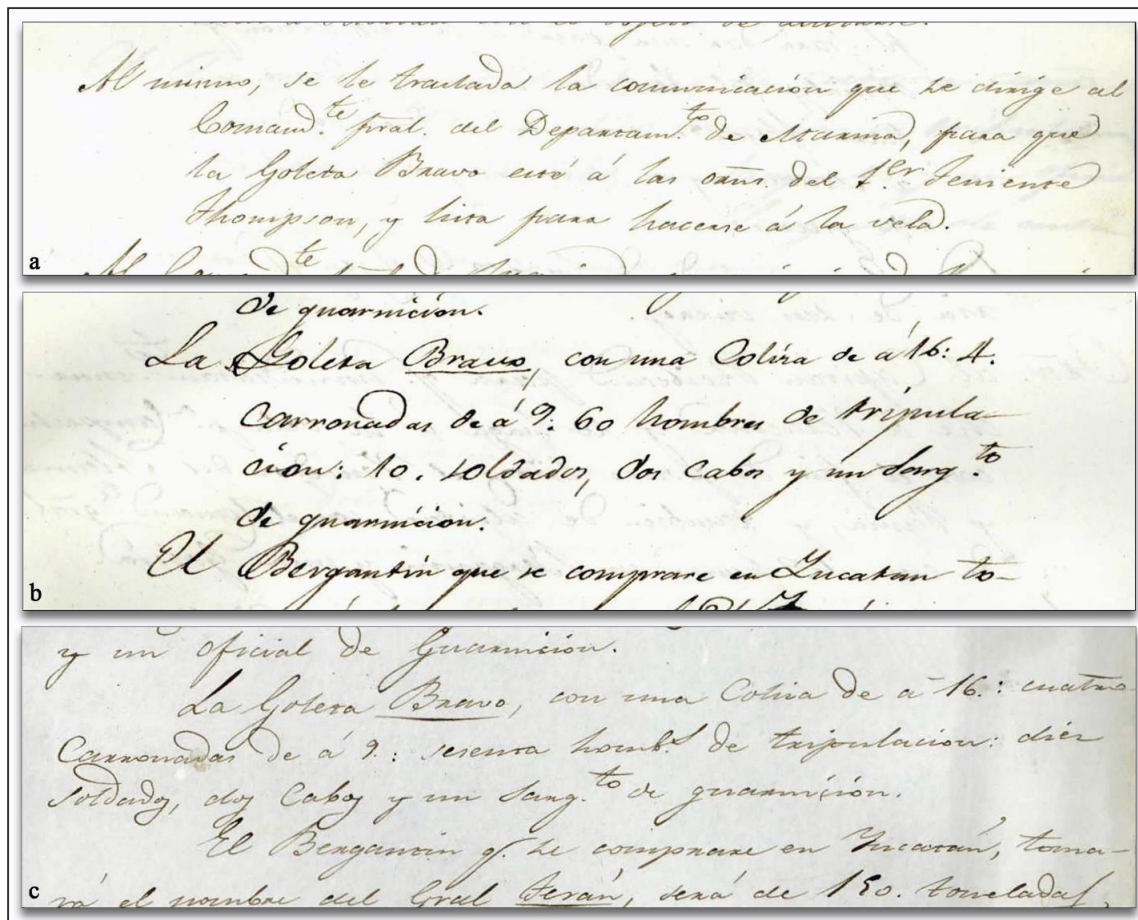 Al mismo, se le traslada la comunicacion que se dirige al
Comand.te pral. del Departam.to de Marina, para que
la Goleta Bravo esté á las orns. del 1.er Teniente
Thompson, y lista para hacerse á la vela.
a
de guarnicion.
La Goleta Bravo, con una Colisa de á 16: 4.
carronadas de á 9. 60 hombres de tripula-
cion: 10. soldados, dos cabos y un Sarg.to
de guarnicion.
El Bergantin que se comprare en Yucatan to-
b
y un oficial de Guarnicion.
La Goleta Bravo, con una Colisa de á 16.: cuatro
Carronadas de á 9.: sesenta homb.s de tripulacion: diez
soldados, dos Cabos y un Sarg.to de guarnición.
El Bergantin q. se comprare en Yucatán, toma-
rá el nombre del Gral Terán, será de 150. toneladas,
c